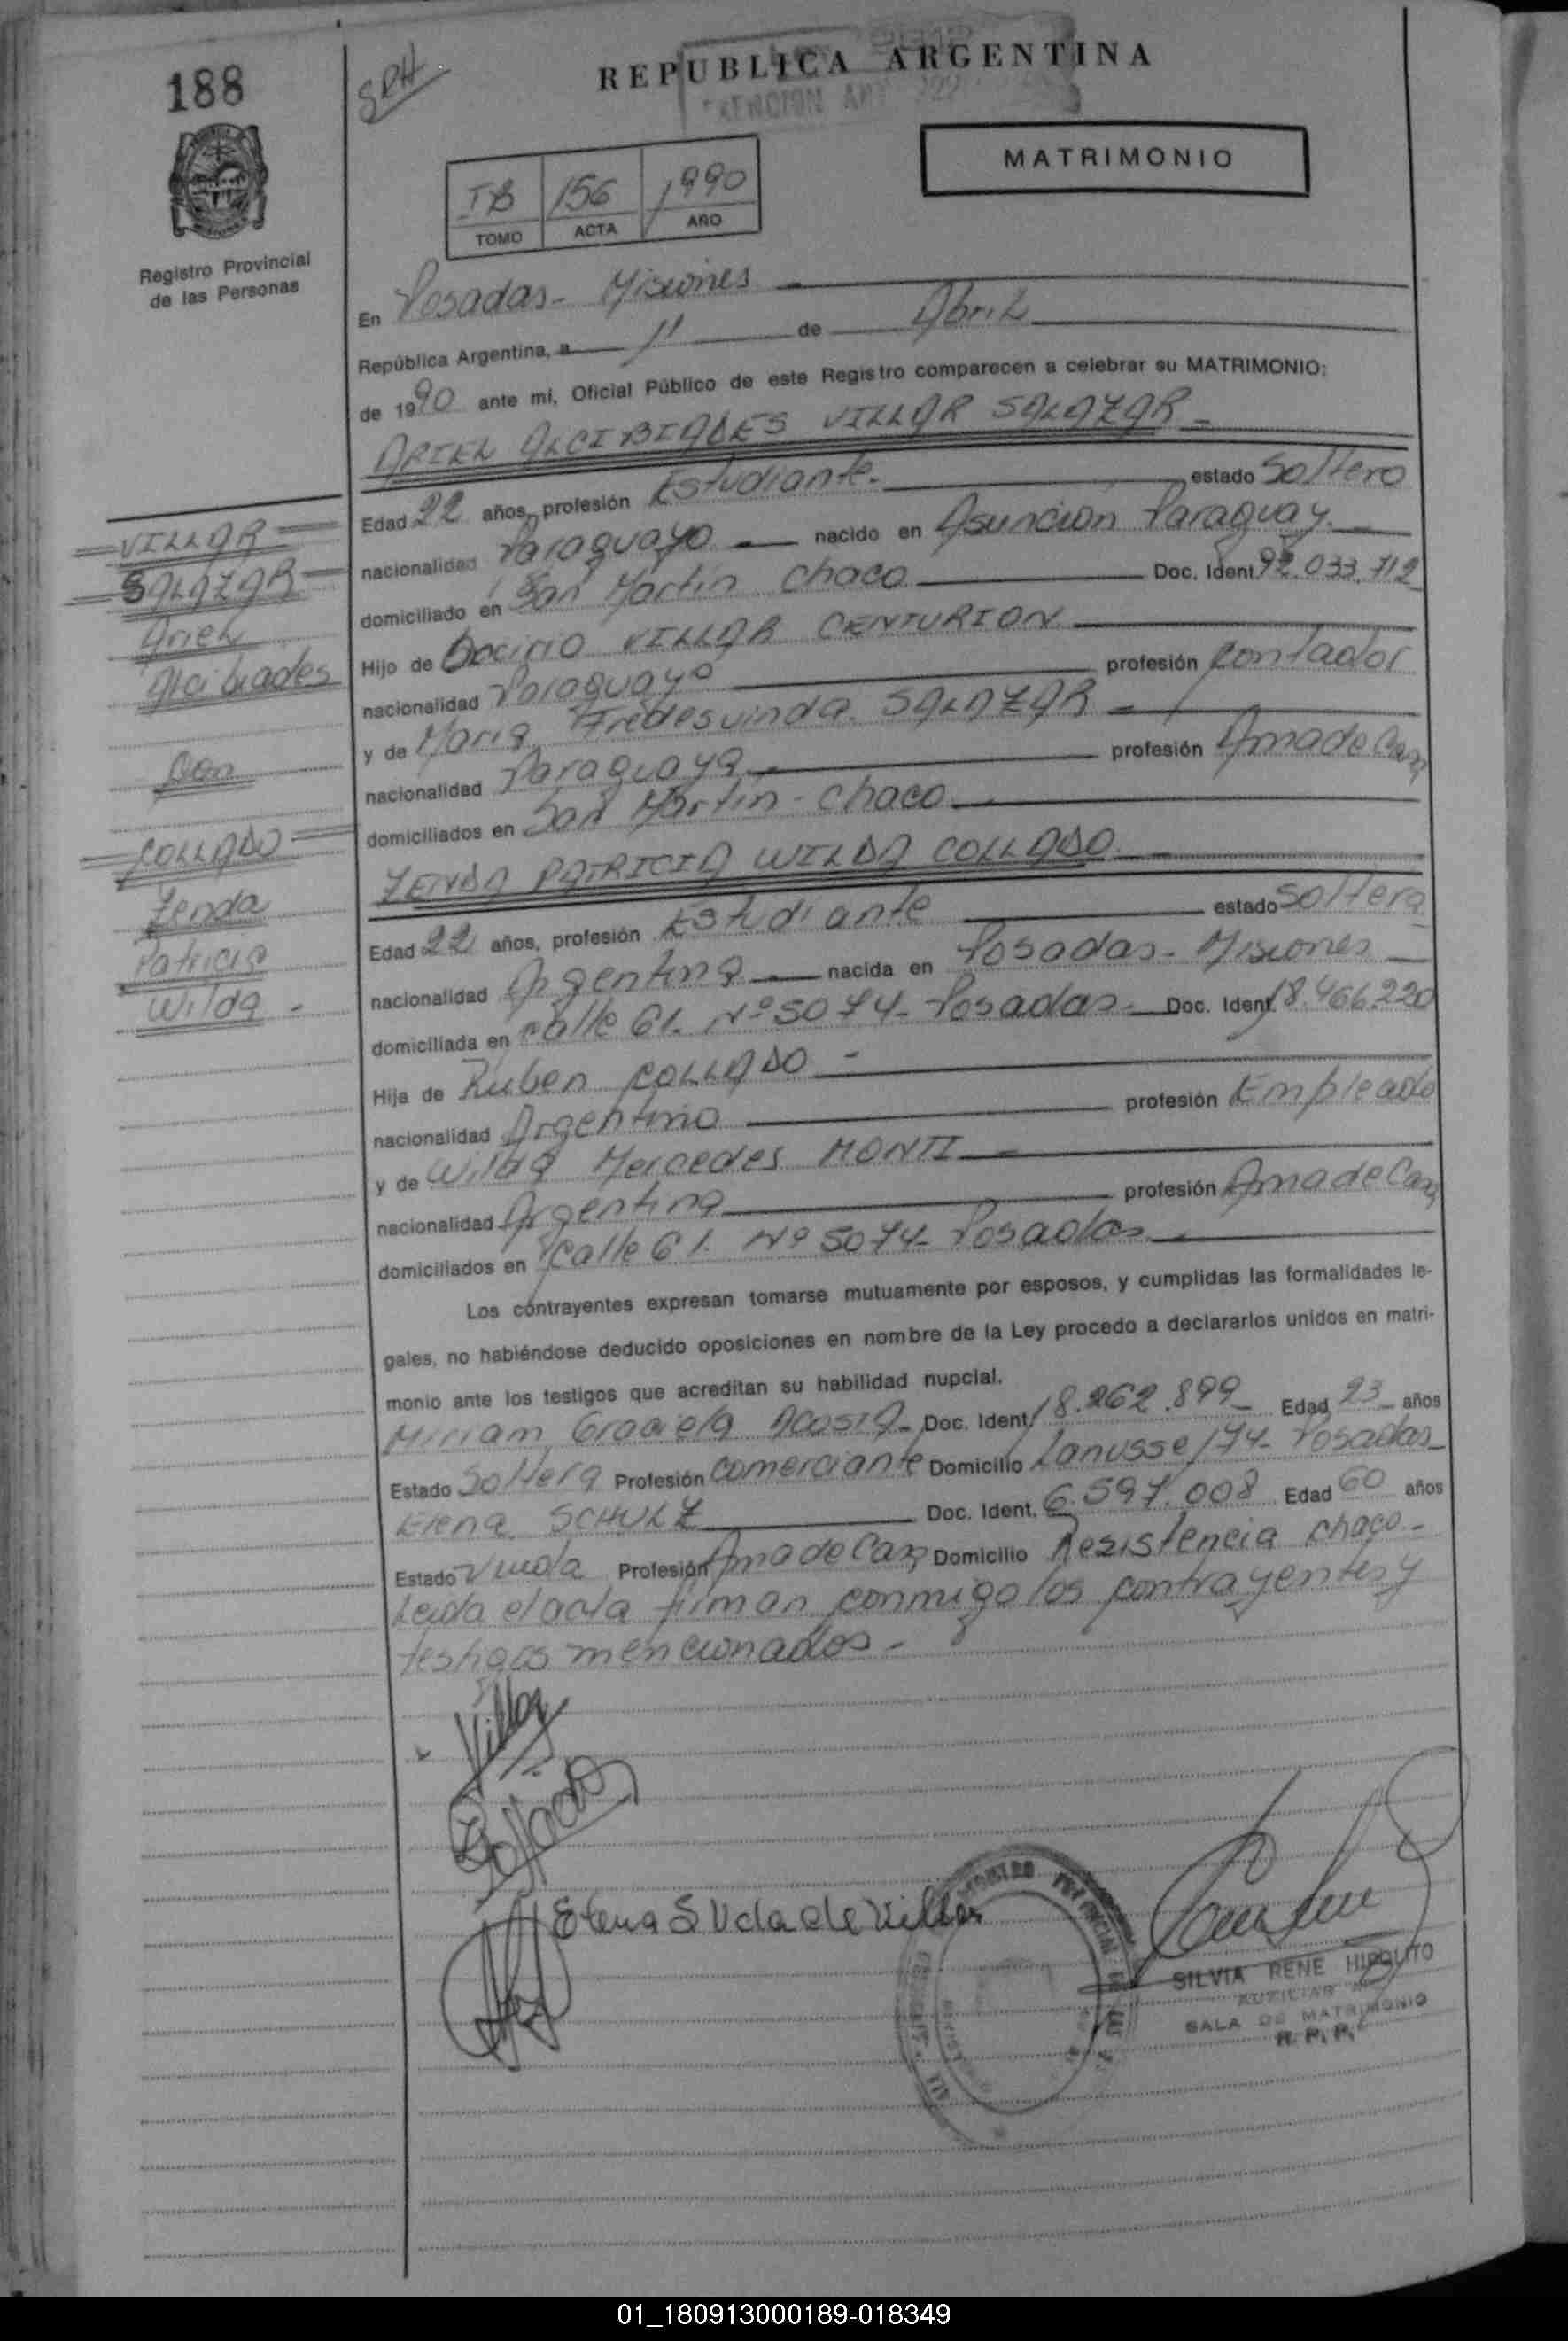 188
SRH
REPUBLICA ARGENTINA
MATRIMONIO
IB 156 1990
TOMO ACTA AÑO
Registro Provincial
de las Personas
En Posadas - Misiones
República Argentina, a 11 de Abril
de 1990 ante mí, Oficial Público de este Registro comparecen a celebrar su MATRIMONIO:
ARIEL ALCIBIADES VILLAR SALAZAR -
Edad 22 años, profesión Estudiante. estado Soltero
nacionalidad Paraguayo nacido en Asunción Paraguay.
domiciliado en San Martín Chaco Doc. Ident. 92.033.712
Hijo de VILLAR CENTURION
nacionalidad Paraguayo profesión Contador
y de Maria Fredesvinda SALAZAR -
nacionalidad Paraguaya profesión Ama de Casa
domiciliados en San Martín - Chaco
ZENDA PATRICIA WILDA COLLADO
Edad 22 años, profesión Estudiante estado Soltera
nacionalidad Argentina nacida en Posadas - Misiones
domiciliada en calle 61. Nº 5074 - Posadas - Doc. Ident. 18.466.220
Hija de Ruben COLLADO -
nacionalidad Argentino profesión Empleado
y de Wilda Mercedes MONTI -
nacionalidad Argentina profesión Ama de Casa
domiciliados en calle 61. Nº 5074 - Posadas
Los contrayentes expresan tomarse mutuamente por esposos, y cumplidas las formalidades le-
gales, no habiéndose deducido oposiciones en nombre de la Ley procedo a declararlos unidos en matri-
monio ante los testigos que acreditan su habilidad nupcial.
Miriam Graciela ACOSTA - Doc. Ident. 18.262.899 - Edad 23 años
Estado Soltera Profesión Comerciante Domicilio Lanusse 174 - Posadas -
Elena SCHULZ Doc. Ident. 6.597.008 Edad 60 años
Estado Viuda Profesión Ama de Casa Domicilio Resistencia Chaco -
Leida el acta firman conmigo los contrayentes y
testigos mencionados -
VILLAR
SALAZAR
Ariel
Alcibiades
Con
COLLADO
Zenda
Patricia
Wilda -
Villar
Collado
Elena S Vda de Villar
SILVIA RENE HIPOLITO
AUXILIAR
SALA DE MATRIMONIO
R. P. P.
01_180913000189-018349